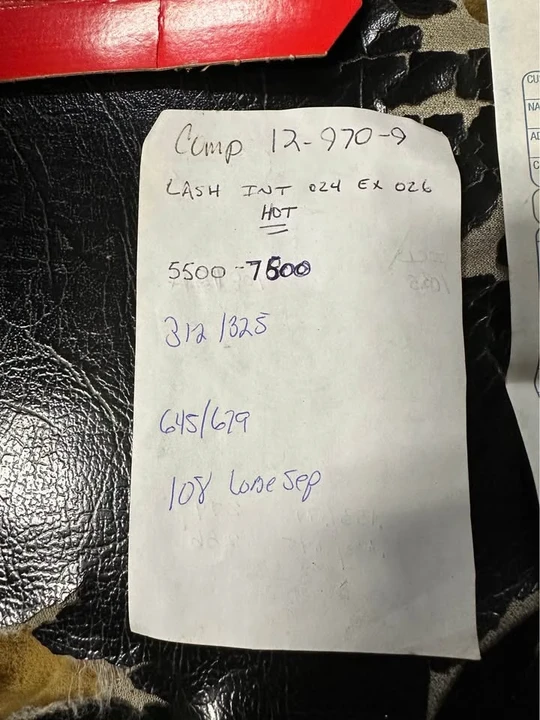 Comp 12-970-9
LASH INT 024 EX 026
HOT
5500 -7800
312 / 325
645/679
108 Lobe Sep
CU
NA
AD
C